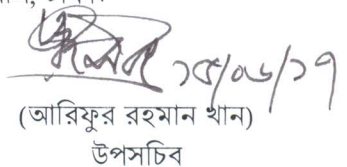 ১৫/০৬/১৭
(আরিফুর রহমান খান)
উপসচিব